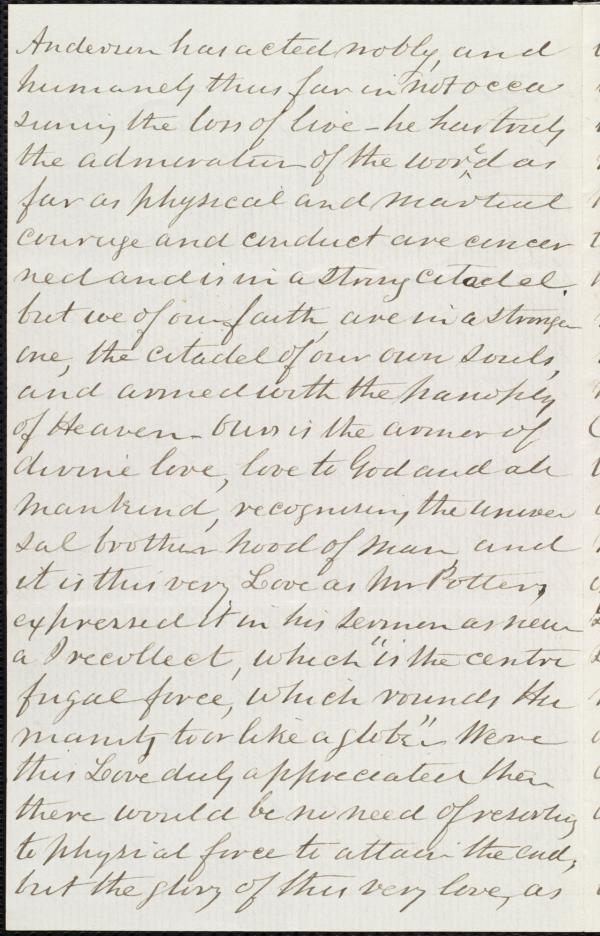 Anderson has acted nobly, and
humanely thus far in not occa
sioning the loss of live - he has truly
the admiration of the world as
far as physical and martial
courage and conduct are concer
ned and is in a strong citadel.
but we of our faith, are in a stronger
one, the citadel of our own souls,
and armed with the panoply
of Heaven - Ours is the armor of
divine love, love to God and all
mankind, recognising the univer
sal brotherhood of man, and
it is this very Love as Mr Potter,
expressed it in his sermon as near
a I recollect, which "is the centre
fugal force, which rounds Hu
manity to or like a globe". Were
this Love duly appreciated then
there would be no need of resorting
to physical force to attain the end,
but the glory of this very love, as